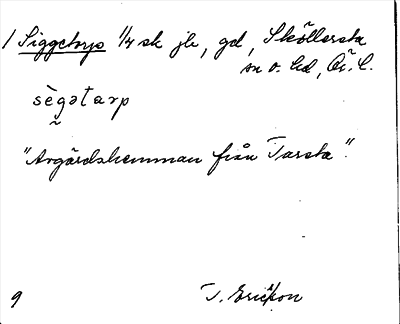 1 Siggetorp 1/4 sk jb, gd, Sköllersta
sn o. hd, Ör. l.
sègətarp
"Avgärdshemman från Tarsta".
9 T. Ericsson